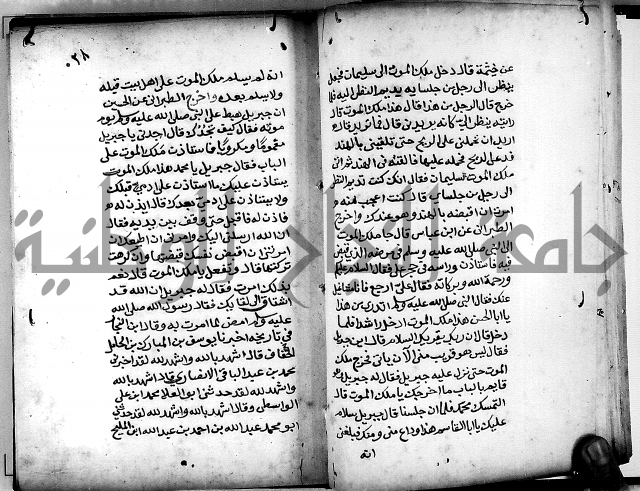 عن خيثمة قال دخل ملك الموت الى سليمان فجعل
ينظر الى رجل من جلسايه يديم النظر اليه فلما
خرج قال الرجل من هذا قال هذا ملك الموت قال
رايته ينظر الي كانه يريدني قال فما تريد قال
اريد ان تحملني على الريح حتى تلقيني بالهند
فدعا الريح فحمله عليها فالقته في الهند ثم اتى
ملك الموت سليمان فقال انك كنت تديم النظر
الى رجل من جلساي قال كنت اعجب منه
امرت ان اقبضه بالهند وهو عندك واخرج
الطبراني عن ابن عباس قال جا ملك الموت
الى النبي صلى الله عليه وسلم في مرضه الذي قبض
فيه فاستاذن وراسه في حجر علي فقال السلام عليكم
ورحمة الله وبركاته فقال علي ارجع فانا مشاغيل
عنك فقال النبي صلى الله عليه وسلم اتدري من هذا
يا ابا الحسن هذا ملك الموت ادخل راشدا فلما
دخل قال ان ربك يقريك السلام قال اين جبريل
فقال ليس هو قريب مني الان ياتي فخرج ملك
الموت حتى نزل عليه جبريل فقال له جبريل وهو
قايم بالباب ما اخرجك يا ملك الموت قال
التمسك محمد فلما ان جلسا قال جبريل سلام
عليك يا ابا القاسم هذا وداع مني ومنك فبلغني
انه
٠٢٨
انه لم يسلم ملك الموت على اهل بيت قبله
ولا يسلم بعده واخرج الطبراني عن الحسين
ان جبريل هبط على النبي صلى الله عليه وسلم يوم
موته فقال كيف تجدك قال اجدني يا جبريل
مغموما ومكروبا فاستاذن ملك الموت على
الباب فقال جبريل يا محمد هذا ملك الموت
يستاذن عليك ما استاذن على ادمي قبلك
ولا يستاذن على ادمي بعدك قال ايذن له
فاذن له فاقبل حتى وقف بين يديه فقال
ان الله ارسلني اليك وامرني ان اطيعك ان
امرتني ان اقبض نفسك قبضتها وان كرهت
تركتها قال وتفعل يا ملك الموت قال نعم
بذلك امرت فقال له جبريل ان الله قد
اشتاق الى لقايك فقال رسول الله صلى الله
عليه وسلم امض لما امرت به وقال ابن النجار
في تاريخه اخبرنا يوسف بن المبارك بن كامل
الخفاف قال اشهد بالله واشهد لله لقد اخبرني
محمد بن عبد الباقي الانصاري قال اشهد بالله
واشهد لله لقد حدثني ابو العلا محمد بن علي
الواسطي وقال اشهد بالله واشهد لله لقد حدثني
ابو محمد عبد الله بن احمد بن عبد الله ابن المليح
جامعة النجاح الوطنية